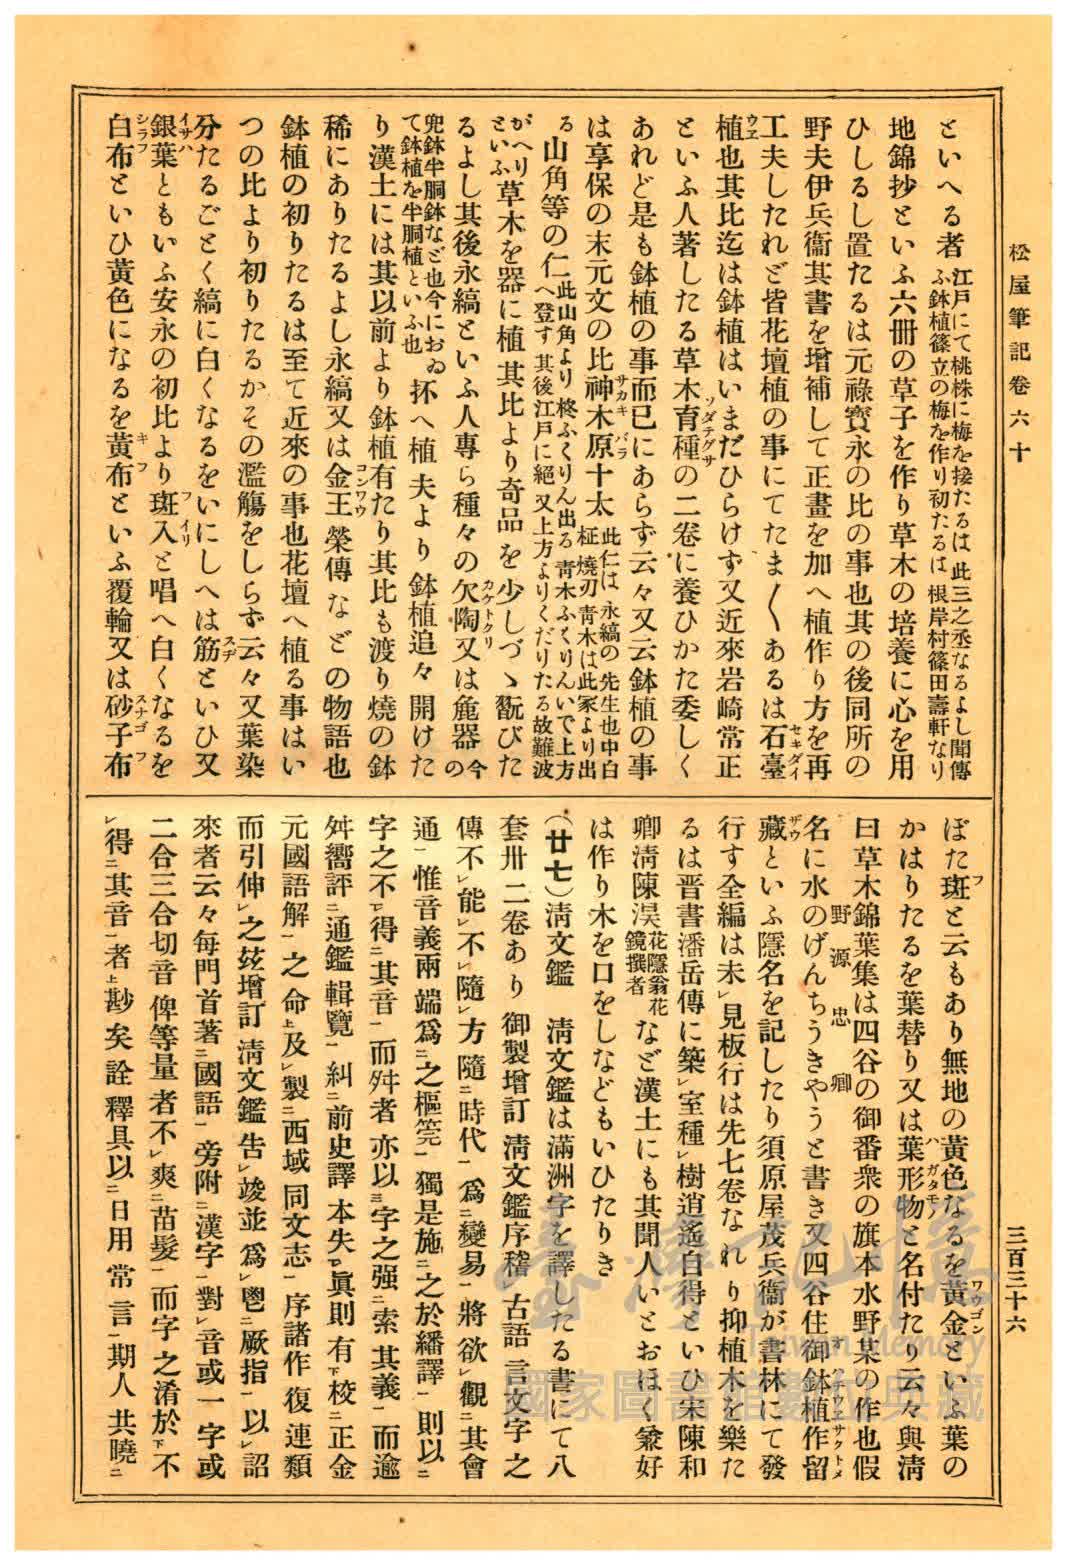 松屋筆記卷六十
三百三十六
といへる者江戶にて桃株に梅を接たるは此三之丞なるよし聞傳ふ鉢植篠立の梅を作り初たるは根岸村篠田壽軒なり
地錦抄といふ六冊の草子を作り草木の培養に心を用
ひしるし置たるは元祿寶永の比の事也其の後同所の
野夫伊兵衞其書を增補して正畫を加へ植作り方を再
工夫したれど皆花壇植の事にてたま〱あるは石臺セキダイ
植ウヱ也其比迄は鉢植はいまだひらけず又近來岩崎常正
といふ人著したる草木育種ソダテグサの二卷に養ひかた委しく
あれど是も鉢植の事而已にあらず云々又云鉢植の事
は享保の末元文の比神木原サカキバラ十太此仁は永縞の先生也中白柾燒刃靑木は此家より出
る山角等の仁此山角より柊ふくりん出る靑木ふくりんいで上方へ登す其後江戶に絕又上方よりくだりたる故難波
がへりといふ草木を器に植其比より奇品を少しづゝ翫びた
るよし其後永縞といふ人專ら種々の欠陶カケトクリ又は麁器今の
兜鉢半胴鉢など也今におゐて鉢植を半胴植といふ也 抔へ植夫より鉢植追々開けた
り漢土には其以前より鉢植有たり其比も渡り燒の鉢
稀にありたるよし永縞又は金王コンワウ榮傳などの物語也
鉢植の初りたるは至て近來の事也花壇へ植る事はい
つの比より初りたるかその濫觴をしらず云々又葉染
分たるごとく縞に白くなるをいにしへは筋スヂといひ又
銀葉イサハともいふ安永の初比より斑入フイリと唱へ白くなるを
白布シラフといひ黃色になるを黃布キフといふ覆輪又は砂子布スナゴフ
ぼた斑フと云もあり無地の黃色なるを黃金ワウゴンといふ葉の
かはりたるを葉替り又は葉形物ハガタモノと名付たり云々與淸
曰草木錦葉集は四谷の御番衆の旗本水野某の作也假
野源忠卿
名に水のげんちうきやうと書き又四谷住御鉢植作留
藏ザウといふ隱名を記したり須原屋茂兵衞が書林にて發
行す全編は未レ見板行は先七卷なれり抑植木を樂た
るは晉書潘岳傳に築レ室種レ樹逍遙自得といひ宋陳和
卿淸陳淏花隱翁花鏡撰者など漢土にも其聞人いとおほく兼好
は作り木を口をしなどもいひたりき
(廿七)淸文鑑　淸文鑑は滿洲字を譯したる書にて八
套卅二卷あり御製增訂淸文鑑序稽レ古語言文字之
傳不レ能レ不レ隨レ方隨二時代一爲二變易一將欲レ觀二其會
通一惟音義兩端爲二之樞筦一獨是施二之於繙譯一則以二
字之不下得二其音一而舛者亦以三字之强二索其義一而逾
舛嚮評二通鑑輯覽一糾二前史譯本失レ眞則有下校二正金
元國語解一之命上及レ製二西域同文志一序諸作復連類
而引伸レ之玆增訂淸文鑑告レ竣並爲レ鬯二厥指一以レ詔
來者云々每門首著二國語一旁附二漢字一對レ音或一字或
二合三合切音俾等量者不レ爽二苗髮一而字之淆於下不
レ得二其音一者上尠矣詮釋具以二日用常言一期人共曉二